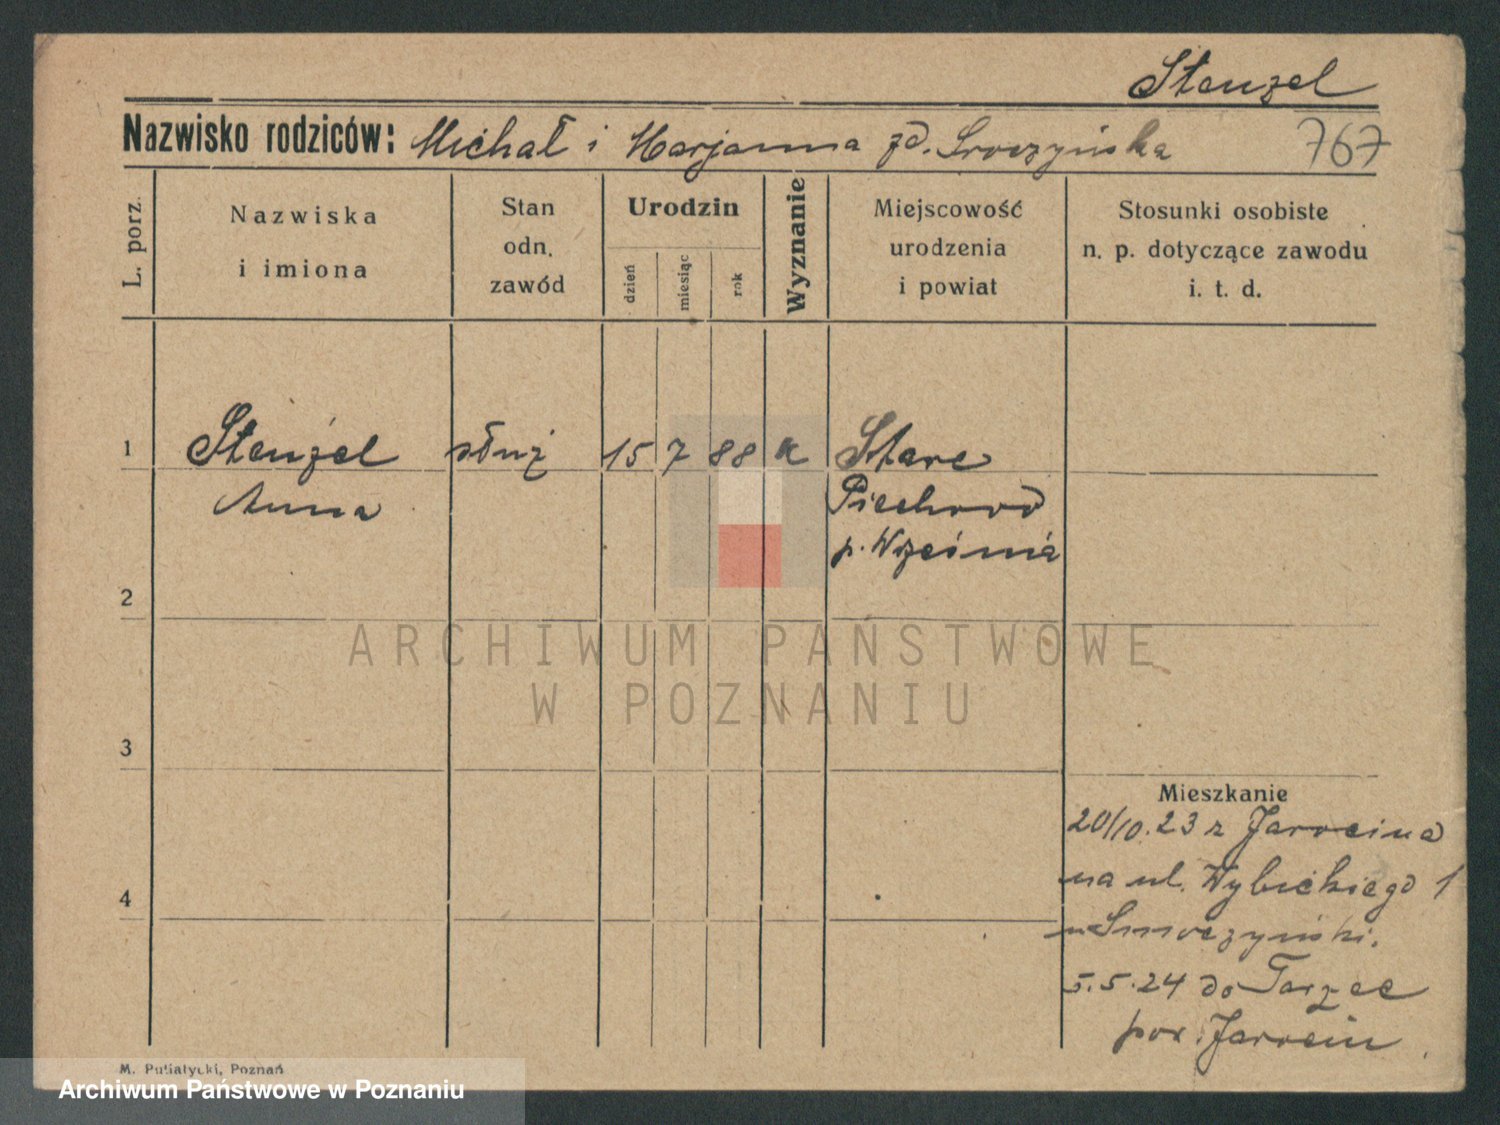 Stenzel
Nazwisko rodziców: Michał i Marjanna zd. Sroczyńska 767
L. porz.
Nazwiska i imiona
Stan odn. zawód
Urodzin
dzień
miesiąc
rok
Wyznanie
Miejscowość urodzenia i powiat
Stosunki osobiste n. p. dotyczące zawodu i. t. d.
1 Stenzel służ 15 7 88 K Stare
Anna Piechowo
p. Września
2
ARCHIWUM PAŃSTWOWE
W POZNANIU
3
Mieszkanie
20/10.23 z Jarocina
na ul. Wybickiego 1
5.5.24 do Tarzec
pow. Jarocin
4
M. Putiatycki, Poznań
Archiwum Państwowe w Poznaniu